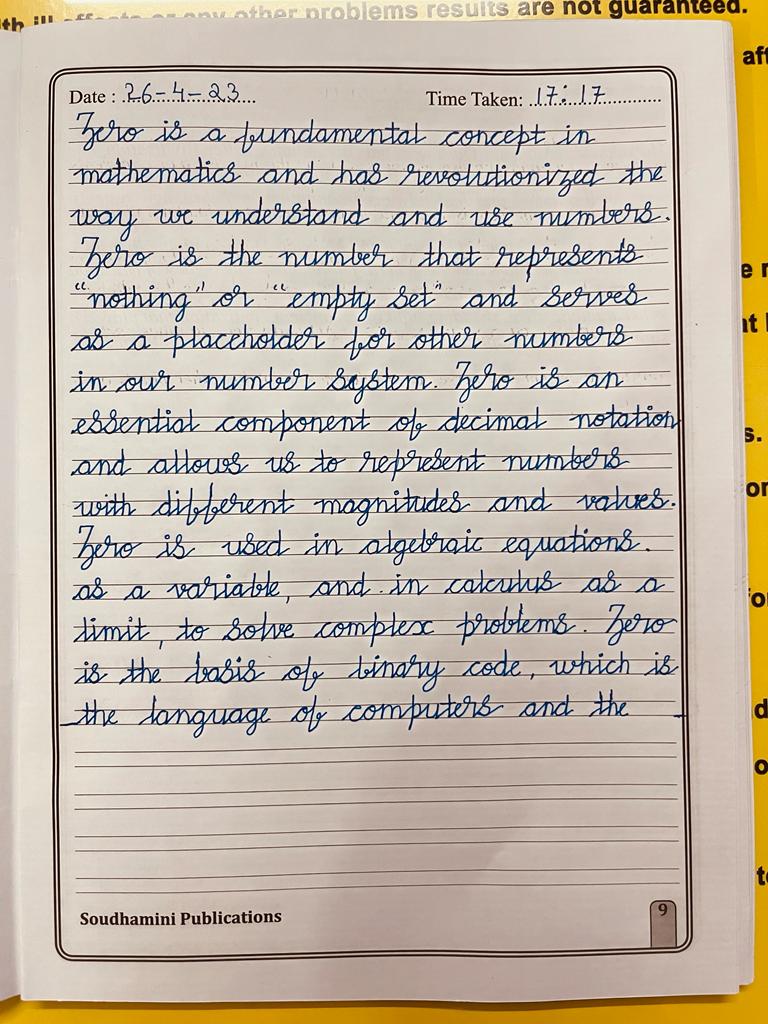 other problems results are not guaranteed.
Date : 26-4-23 Time Taken: 17:17
Zero is a fundamental concept in
mathematics and has revolutionized the
way we understand and use numbers.
Zero is the number that represents
"nothing" or "empty set" and serves
as a placeholder for other numbers
in our number system. Zero is an
essential component of decimal notation
and allows us to represent numbers
with different magnitudes and values.
Zero is used in algebraic equations.
as a variable, and in calculus as a
limit, to solve complex problems. Zero
is the basis of binary code, which is
the language of computers and the
Soudhamini Publications
9